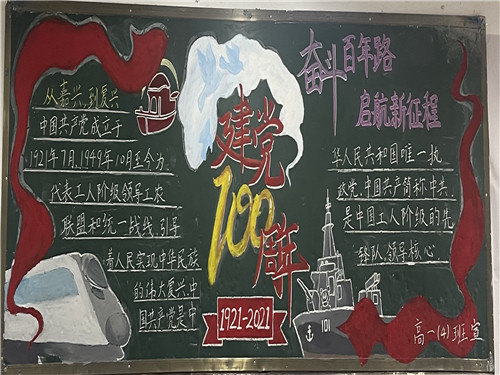 从嘉兴,到复兴
中国共产党成立于
1921年7月,1949年10月至今为
代表工人阶级领导工农
联盟和统一战线,引导
着人民实现中华民族
的伟大复兴,中
国共产党是中
建党
100
周年
1921-2021
奋斗百年路
启航新征程
华人民共和国唯一执
政党,中国共产简称中共,
是中国工人阶级的先
锋队,领导核心
101
高一(4)班宣